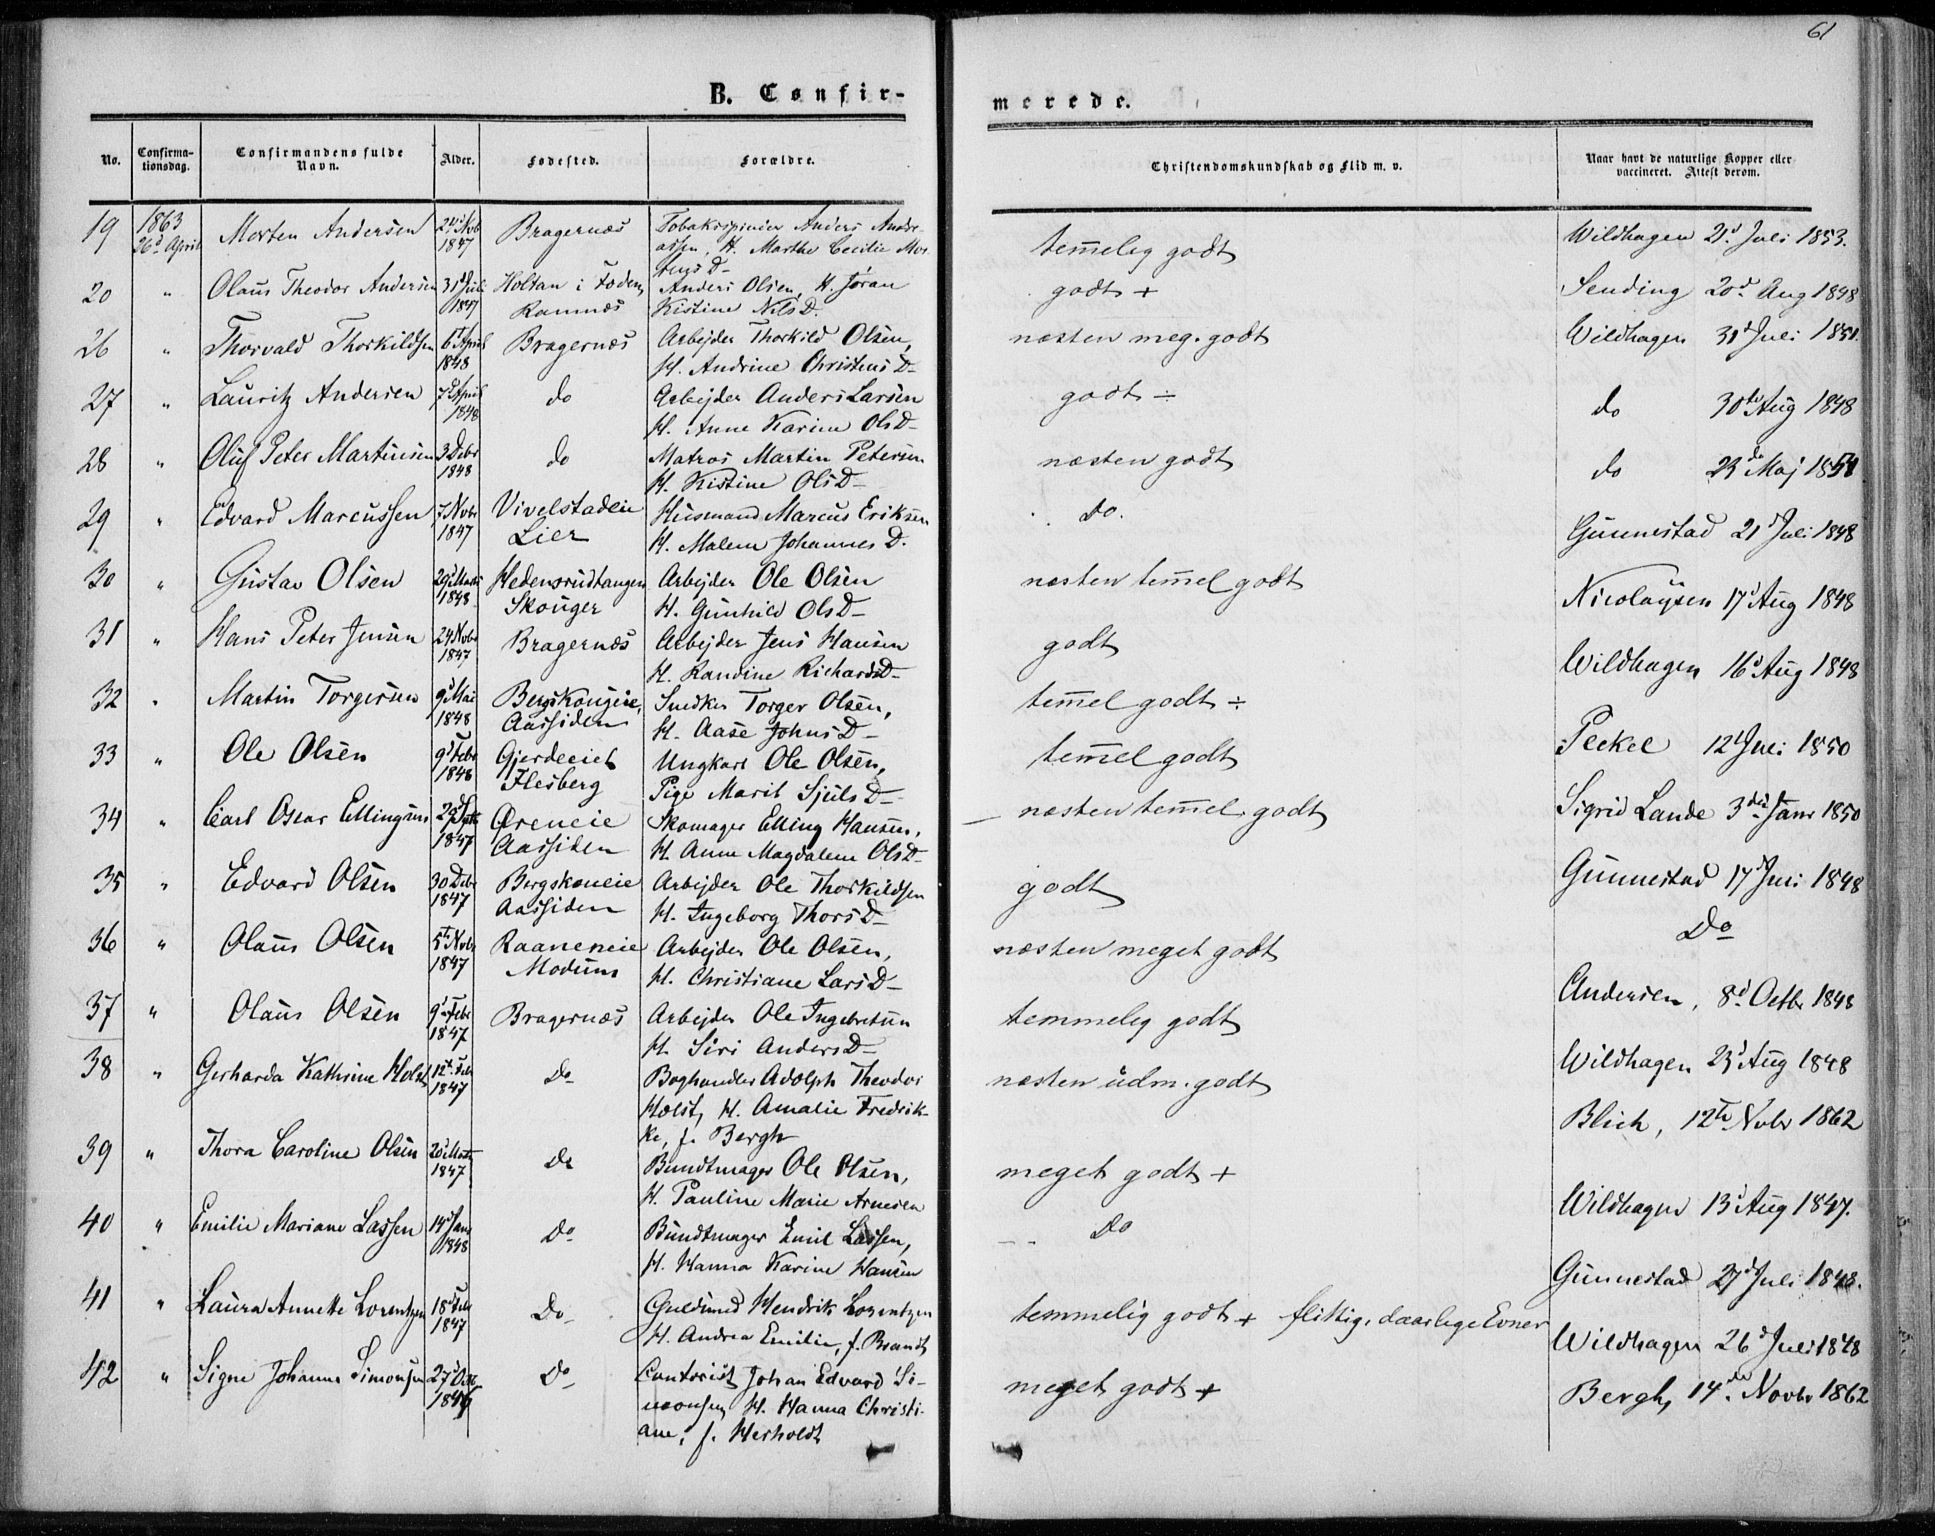 61
B. Confir-
merede.
No.
Confirma-
tionsdag.
Confirmandens fulde
Navn.
Alder.
Fødested.
Forældre.
Christendomskundskab og Flid m. v.
Naar havt de naturlige Kopper eller
vaccineret. Attest derom.
19 1863 26d April Morten Andersen 24d Nov 1847 Bragernæs Tobakspinder Anders Andre-
assen, H. Marthe Cecilie Mor
tens D- temmelig godt Wildhagen 21d Juli 1853.
20 " Olaus Theodor Andersen 31d Juli 1847 Holtan i Foden Ramnæs Anders Olsen, H. Jøran
Kistine Nils D. godt + Sending 20d Aug 1848
26 " Thorvald Thorkildsen 6t April 1848 Bragernæs Arbejder Thorkild Olsen,
H. Andrine Christens D- næsten meg. godt Wildhagen 31d Juli 1851.
27 " Lauritz Andersen 7d April 1848 do Arbejder Anders Larsen
H. Anne Karine Ols D- godt ÷ do 30te Aug 1848
28 " Oluf Peter Martinsen 3 Debr 1848 do Matros Martin Petersen
H. Kistine Ols D- næsten godt do 23de Maj 1851
29 " Edvard Marcussen 7 Nvbr 1847 Vivelstadeie
Lier Husmand Marcus Eriksen
H. Malene Johannes D. do. Gunnestad 21d Juli 1848
30 " Gustav Olsen 29d Marts 1848 Hedensrudtangen
Skouger Arbejder Ole Olsen
H. Gunhild Ols D- næsten temmel godt Nicolaysen 17d Aug 1848
31 " Hans Peter Jensen 24 Novbr 1847 Bragernæs Arbejder Jens Hansen
H. Randine Richards D- godt Wildhagen 16d Aug 1848
32 " Martin Torgersen 9d Mai 1848 Bergskougeie,
Aassiden Snedker Torger Olsen,
H. Aase Johns D- temmel godt ÷ Peckel 12t Juli 1850
33 " Ole Olsen 9d Febr 1848 Gjerdeeiet
Flesberg Ungkarl Ole Olsen,
Pige Marit Sjuls D- temmel godt Sigrid Lande 3die Janr 1850
34 " Carl Oscar Ellingsen 29d 1847 Øreneie
Aassiden Skomager Elling Hansen,
H. Anne Magdalene Ols D- næsten temmel. godt Gunnestad 17d Juni 1848
35 " Edvard Olsen 30 Debr 1847 Bergskoueie
Aassiden Arbejder Ole Thorkildsen
H. Ingeborg Thors D- godt Do
36 " Olaus Olsen 5te Nvbr 1847 Raaneneie
Modum Arbejder Ole Olsen,
H. Christiane Lars D- næsten meget godt Andersen, 8d Octbr 1848
37 " Olaus Olsen 9d Febr 1847 Bragernæs Arbejder Ole Ingebretsen
H. Siri Anders D- temmelig godt Wildhagen 23d Aug 1848
38 " Gerharda Kathrine Holst 12te Feb 1847 Do Boghandler Adolph Theodor
Holst, H. Amalie Fredrik-
ke, f. Bergh næsten udm. godt Blich, 12te Nvbr 1862
39 " Thora Caroline Olsen 20d Marts 1847 Do Bundtmager Ole Olsen,
H. Pauline Marie Arnesen meget godt + Wildhagen 13d Aug 1847.
40 " Emilie Mariane Lassen 14d Janr 1848 Do Bundtmager Emil Lassen,
H. Hanna Karine Hansen Do Gunnestad 27d Juli 1848.
41 " Laura Annette Lorentzen 18d Febr 1847 Do Guldsmed Hendrik Lorentzen
H. Andrea Emilie, f. Brandt temmelig godt + flittig, daarlige Evner Wildhagen 26d Juli 1848
42 " Signe Johanne Simonsen 27d Do Contorist Johan Edvard Si-
monsen H. Hanna Christi-
ane, f. Herholdt meget godt + Bergh, 14de Novbr 1862